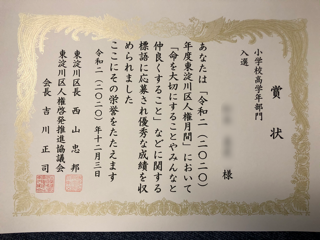 賞状
小学校高学年部門
入選
様
あなたは「令和二(二〇二〇)
年度東淀川区人権月間」において
「命を大切にすることやみんなと
仲良くすること」などに関する
標語に応募され優秀な成績を収
められました
ここにその栄誉をたたえます
令和二(二〇二〇)年十二月三日
東淀川区長 西山忠邦
東淀川区人権啓発推進協議会
会長 吉川正司